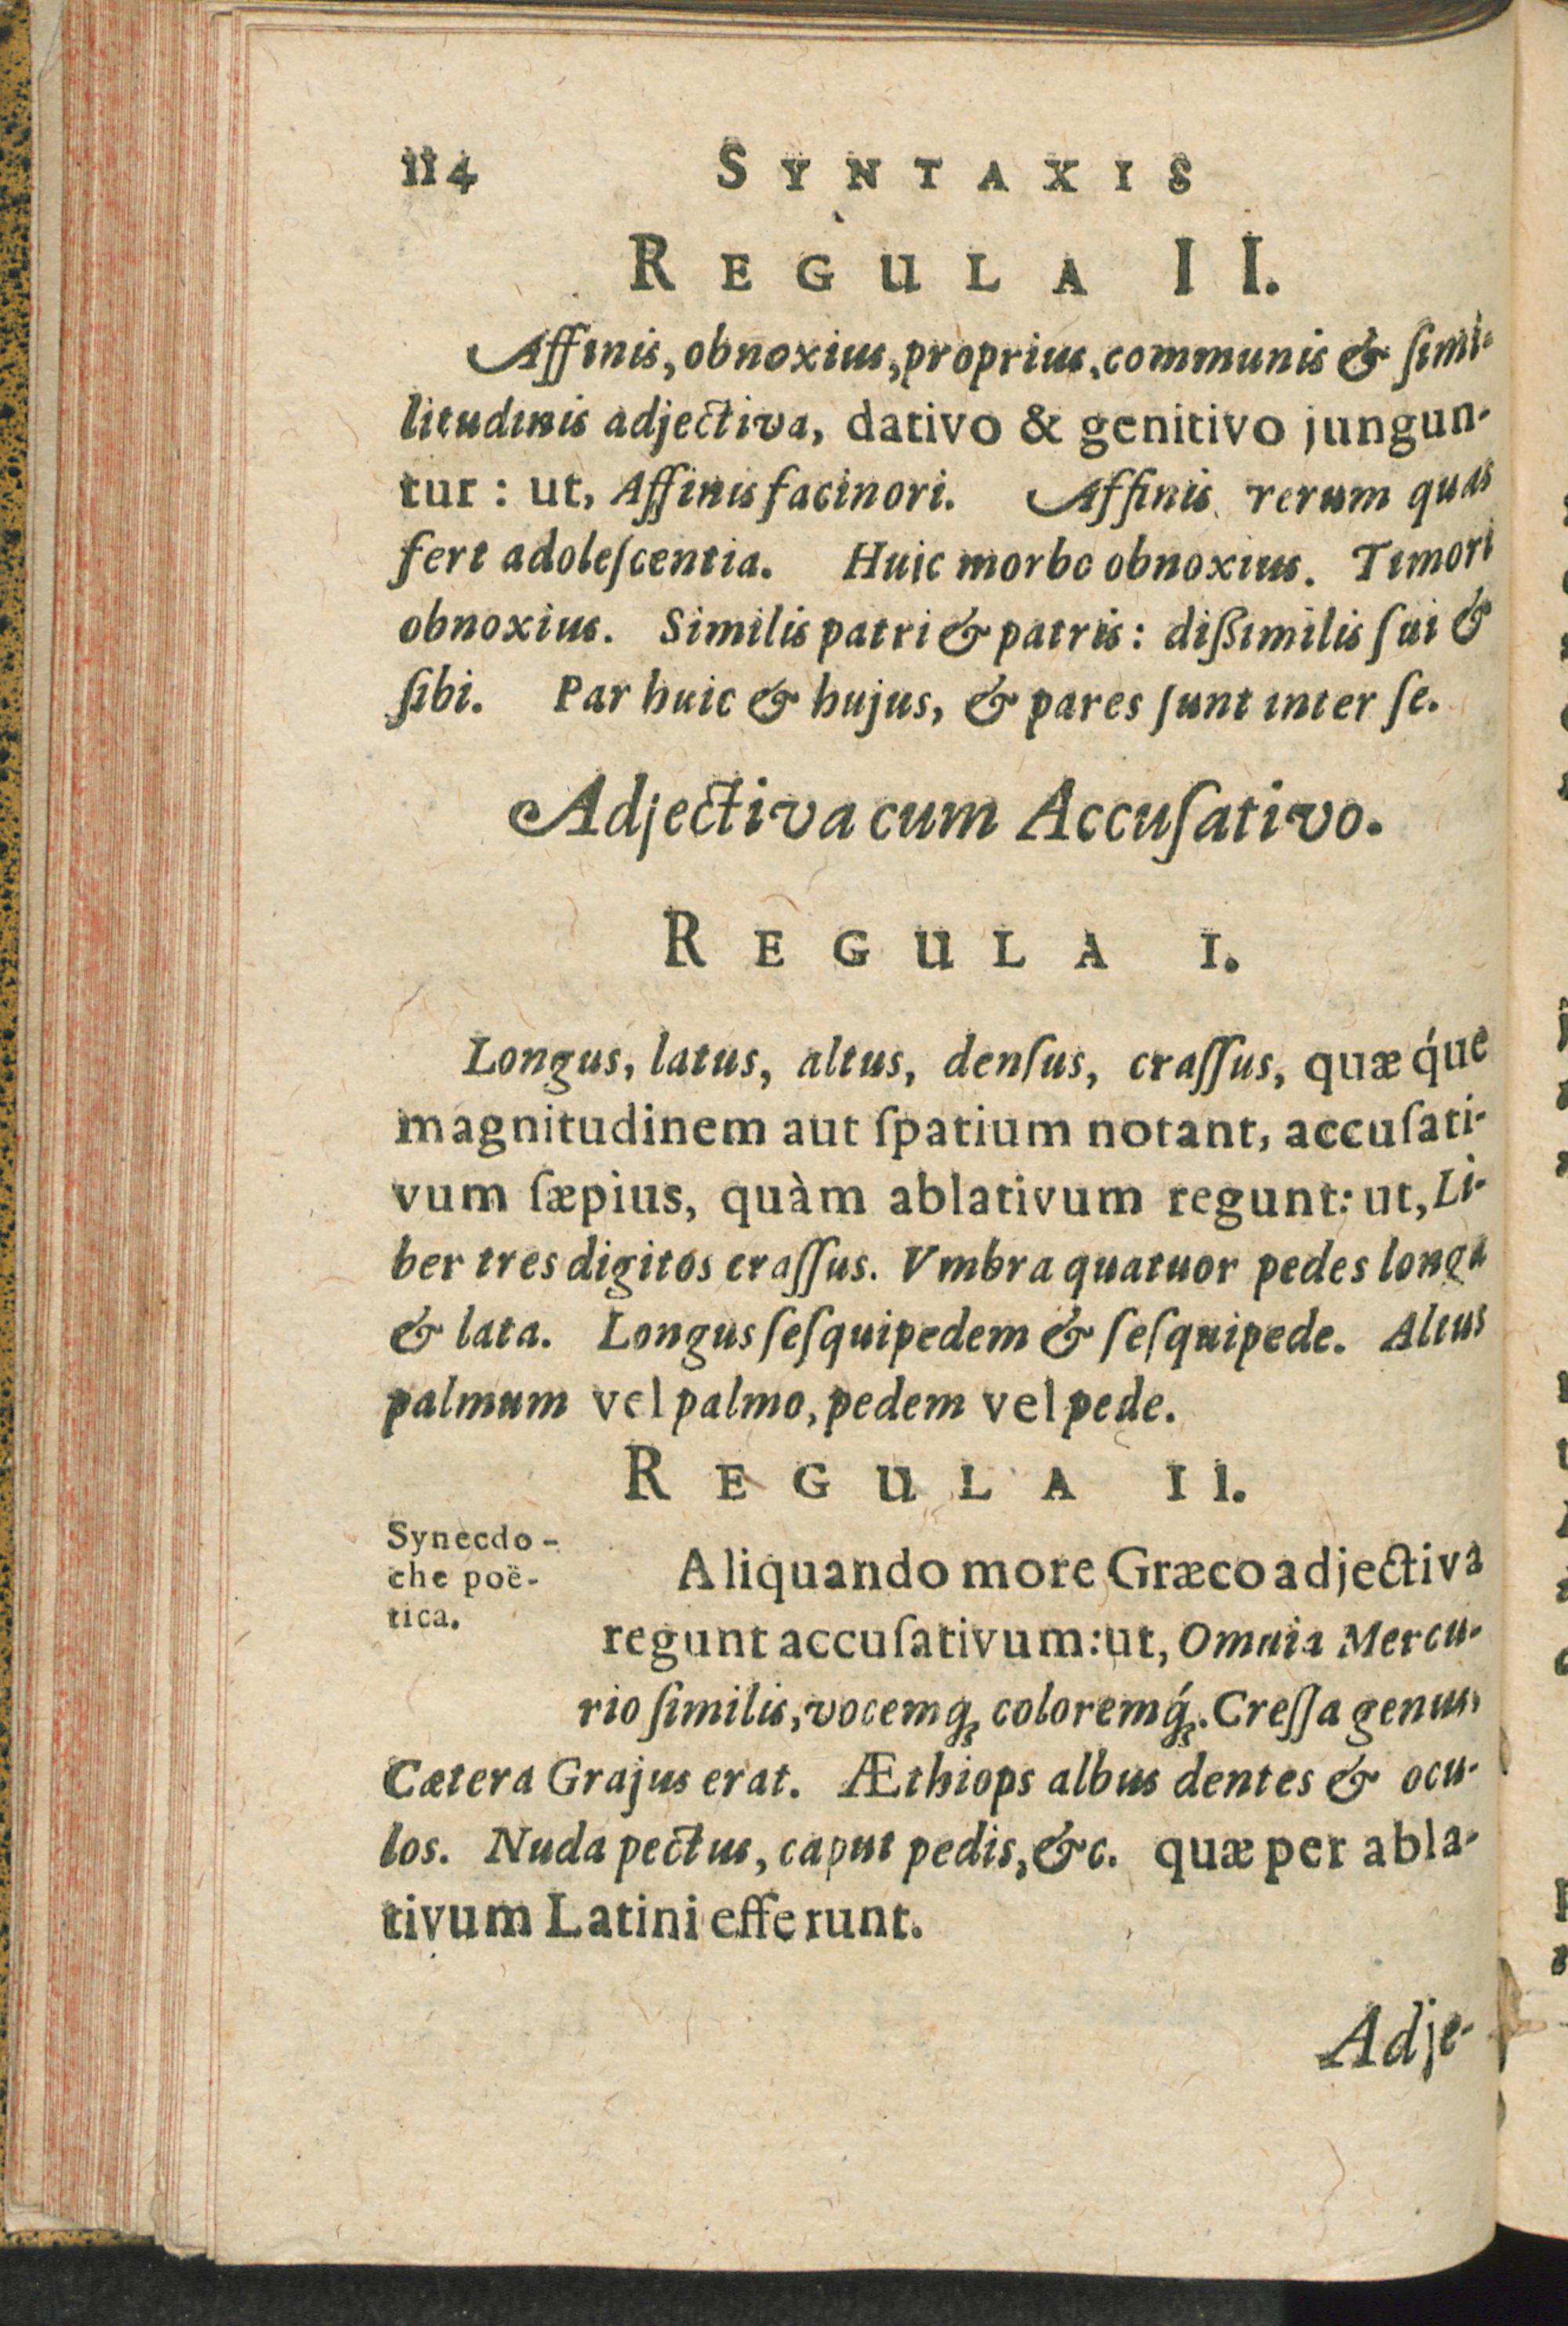 114 SYNTAXIS
REGULA II.
Affinis, obnoxius, proprius, communis & ſimi-
litudinis adjectiva, dativo & genitivo jungun-
tur: ut, Affinis facinori. Affinis rerum quas
fert adoleſcentia. Huic morbo obnoxius. Timori
obnoxius. Similis patri & patris: diſsimilis ſui &
ſibi. Par huic & hujus, & pares ſunt inter ſe.
Adjectiva cum Accuſativo.
REGULA I.
Longus, latus, altus, denſus, craſſus, quæq́ue
magnitudinem aut ſpatium notant, accuſati-
vum ſæpius, quàm ablativum regunt: ut, Li-
ber tres digitos craſſus. Vmbra quatuor pedes longa
& lata. Longus ſeſquipedem & ſeſquipede. Altus
palmum vel palmo, pedem vel pede.
REGULA II.
Synecdo-
che poë-
tica.
Aliquando more Græco adjectiva
regunt accuſativum: ut, Omnia Mercu-
rio ſimilis, vocemq́; coloremq́;. Creſſa genus,
Cætera Grajus erat. Æthiops albus dentes & ocu-
los. Nuda pectus, caput pedis, &c. quæ per abla-
tivum Latini efferunt.
Adje-